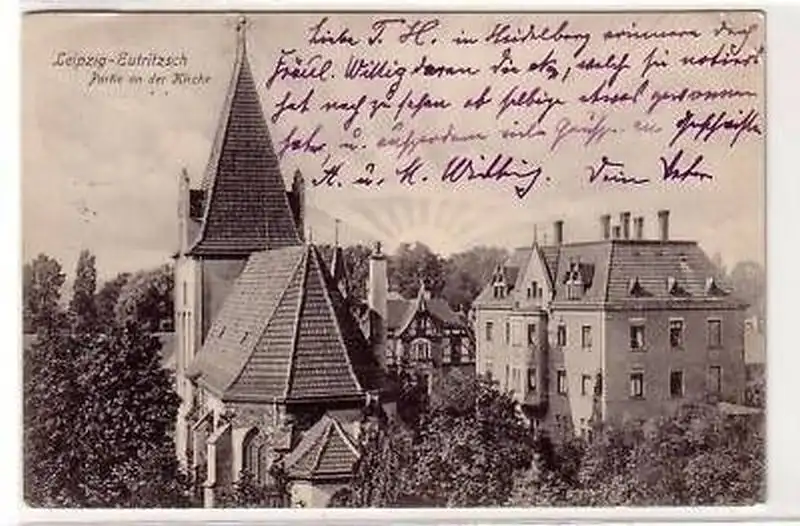 Leipzig-Eutritzsch
Partie an der Kirche
Liebe T. H. in Heidelberg erinnere doch
Fräul. Willig daran die etz, welch sie notiert
hat nach zu sehen ob selbige etwas gewonnen
habe, u. ausserdem viele Grüsse an Geschwister
A. u. M. Dein Vater